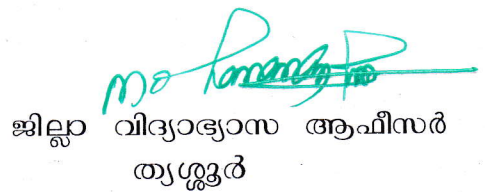 ജില്ലാ വിദ്യാഭ്യാസ ആഫീസർ
തൃശ്ശൂർ